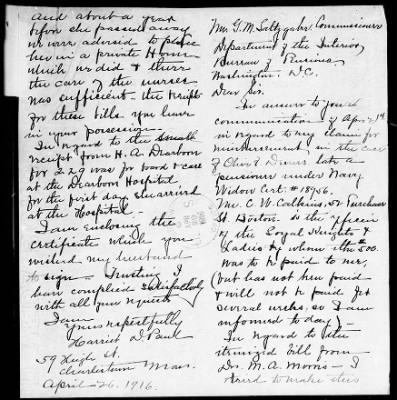 Mr. G. M. Saltzgaber, Commissioner
Department of the Interior,
Bureau of Pensions,
Washington, D.C.
Dear Sir.
In answer to your
communication of Apr.
in regard to my claim for
reimbursement in the case
of Olive E. late a
pensioner under Navy
Widow Cert. # 18956.
Mr. C. W. Calkins, 54
St. Boston is the officer
of the Loyal Knights &
Ladies by whom the $500.
was to be paid to me,
(but has not been paid
& will not be paid for
several weeks, so I am
informed to day)-
In regard to the
itemized bill from
Dr. M. A. Morris - I
tried to make this
and about a year
before she passed away
we were advised to place
her in a private Home
which we did & there
the care of the nurses
was sufficient - the receipts
for these bills you have
in your possession.
In regard to the small
receipt from H. A. Dearborn
for 2.29 was for board & care
at the Dearborn Hospital
for the first day she arrived
at the Hospital -
I am enclosing the
certificate which you
wished my husband
to sign - Trusting I
have complied satisfactorily
with all your requests
I am
yours respectfully
Harriet D. Paul
59 High St.
Charlestown Mass.
April - 26. 1916.